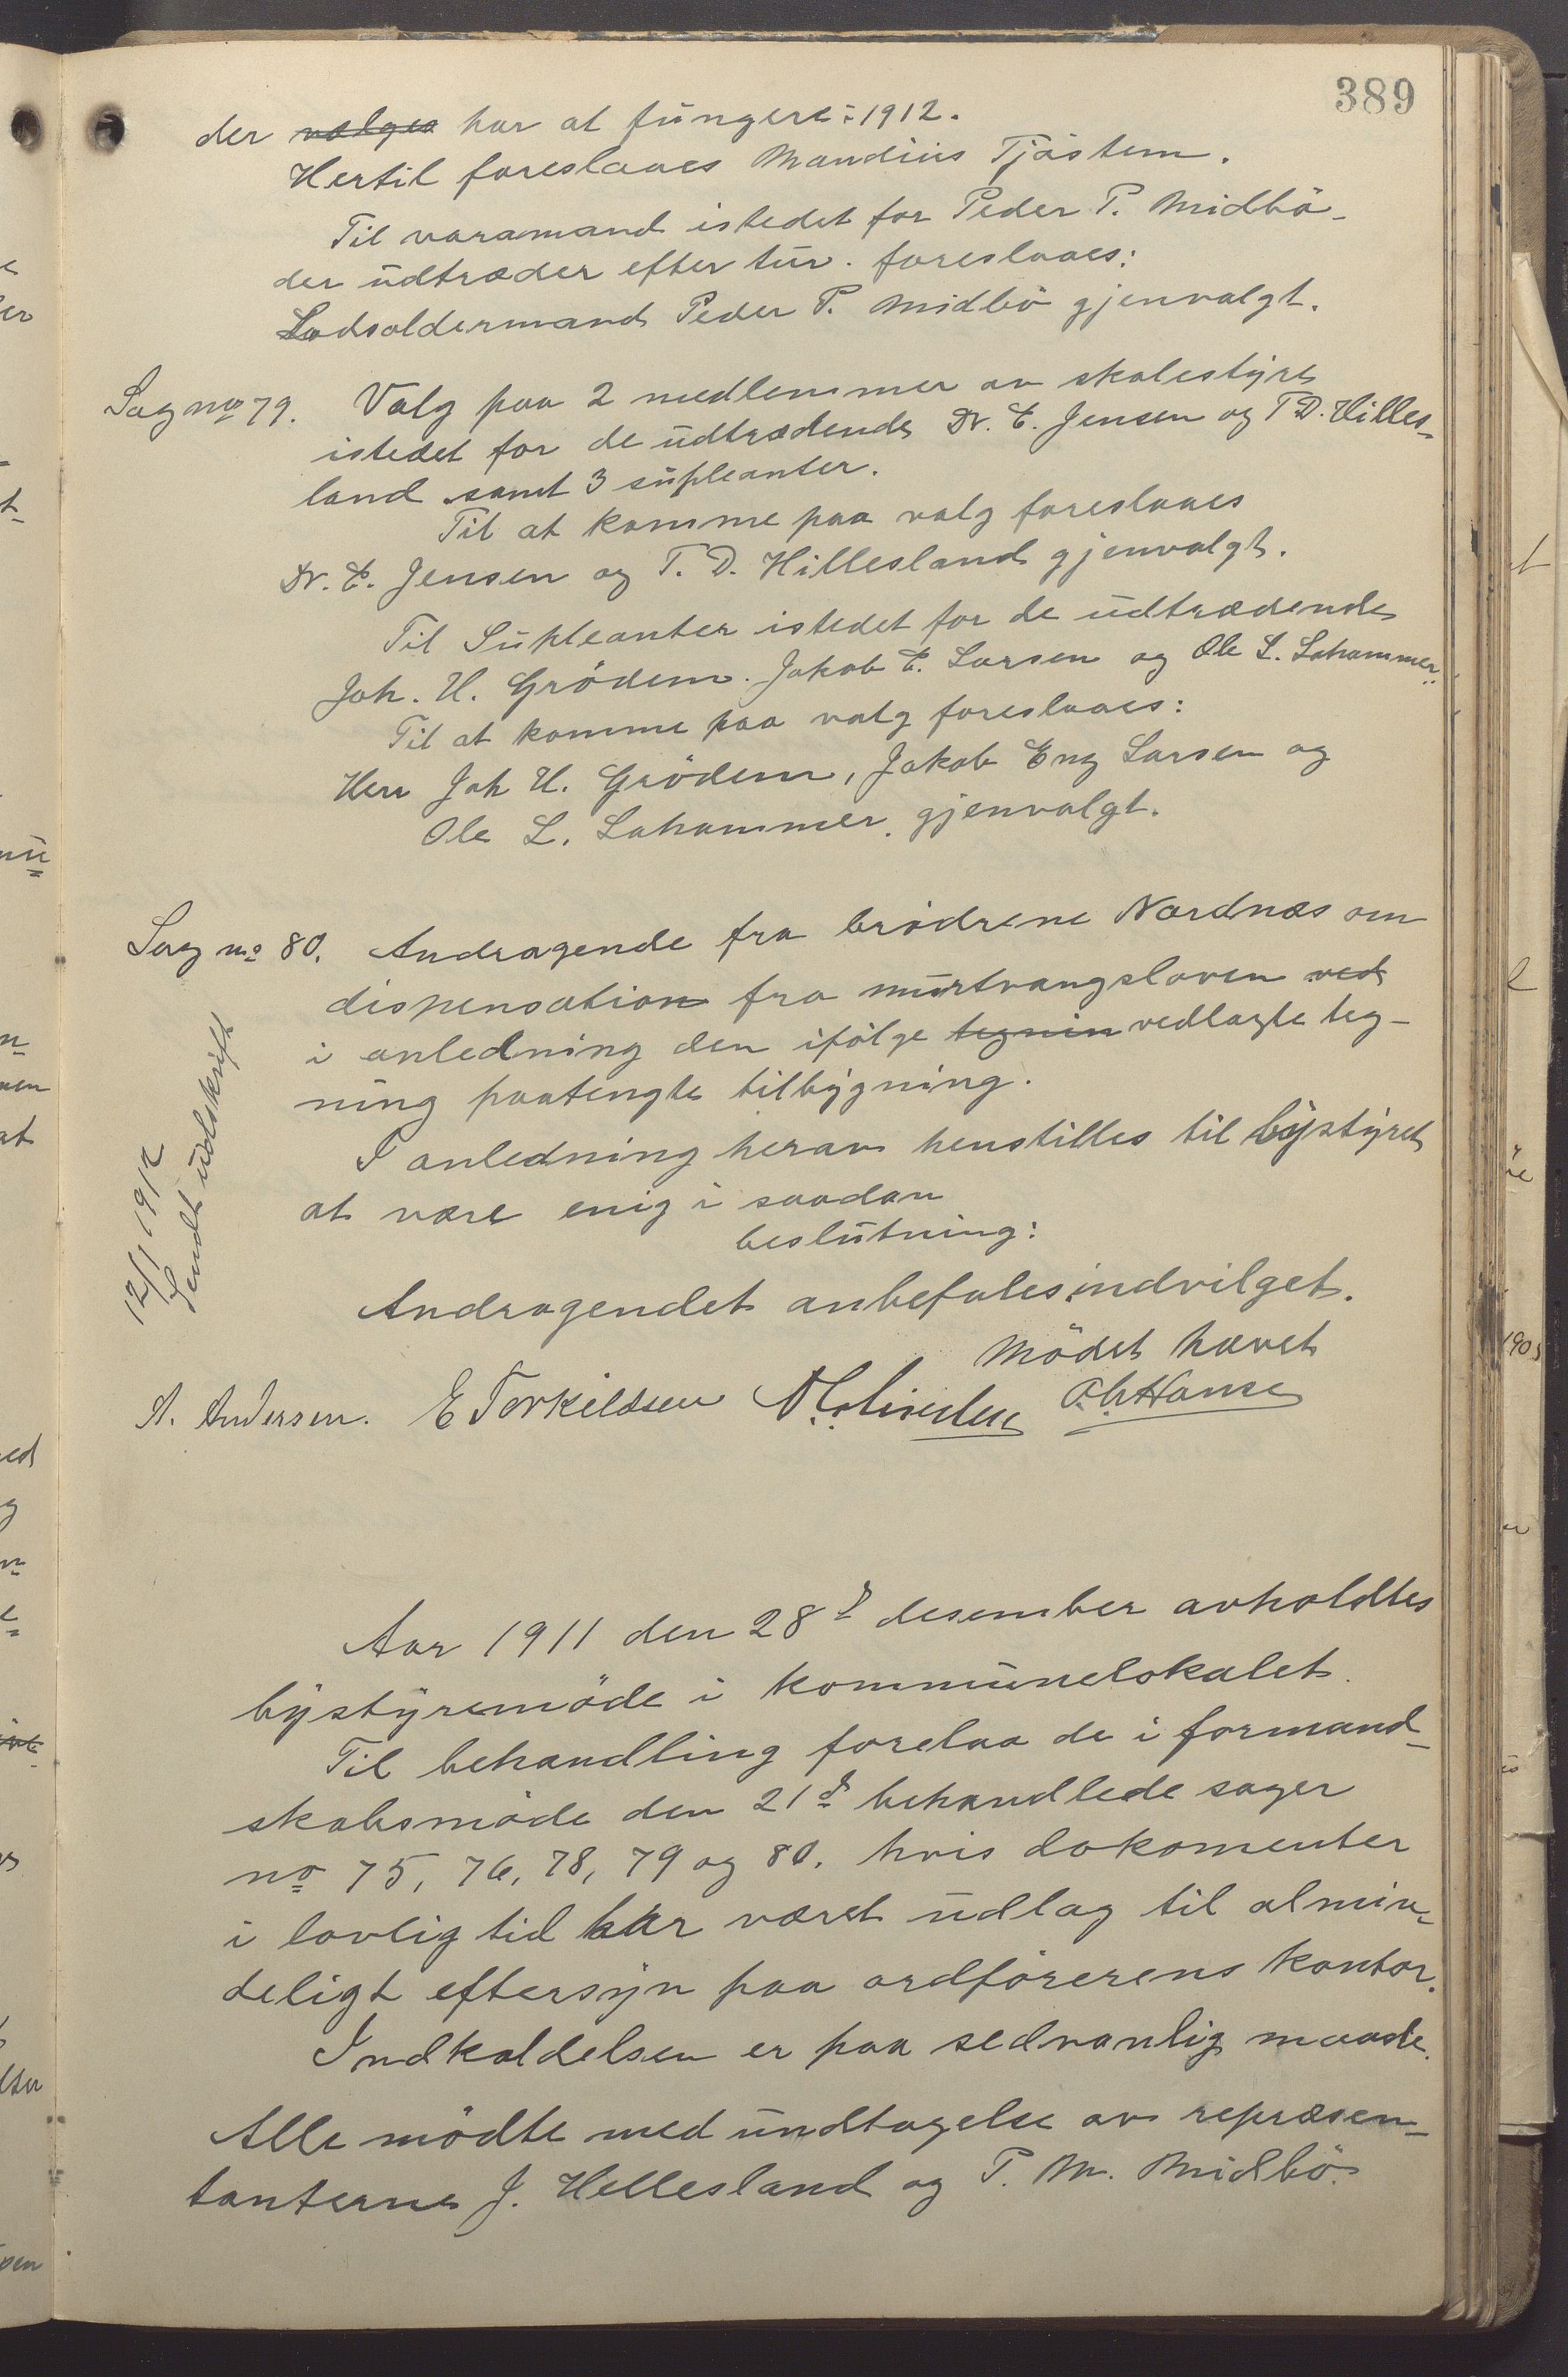 389
der valges har at fungere i 1912.
Hertil foreslaaes Mandius Tjåstem.
Til varamand istedet for Peder P. Midbö
der udtræder efter tur. foreslaaes:
Lodsoldermand Peder P. Midbö gjenvalgt.
Sag no 79. Valg paa 2 medlemmer av skolestyre
istedet for de udtrædende Dr. E. Jensen og T D. Hilles-
land samt 3 supleanter.
Til at komme paa valg foreslaaes
Dr. E. Jensen og T. D. Hillesland gjenvalgt.
Til Supleanter istedet for de udtrædende
Joh. H. Grödem. Jakob E. Larsen og Ole L. Lahammer.
Til at komme paa valg foreslaaes:
Herr Joh H. Grödem, Jakob Eng Larsen og
Ole L. Lahammer, gjenvalgt.
Sag no 80. Andragende fra brödrene Nordnæs om
dispensation fra murtvangsloven ved
i anledning den ifölge tegnin vedlagte teg-
ning paatengte tilbygning.
I anledning herav henstilles til bystyret
at være enig i saadan
beslutning:
Andragendet anbefales indvilget.
Mödet hævet
12/1 1912
Sendt udskrift
A. Andersen. E Torkildsen
Aar 1911 den 28d desember avholdtes
bystyremöde i kommunelokalet.
Til behandling forelaa de i formand-
skabsmöde den 21d behandlede sager
no 75, 76, 78, 79 og 80. hvis dokomenter
i lovlig tid har været udlag til almin-
deligt eftersyn paa ordförerens kontor.
Indkaldelsen er paa sedvanlig maade.
Alle mödte med undtagelse av repræsen-
tanterne J. Hellesland og P. M. Midbö.